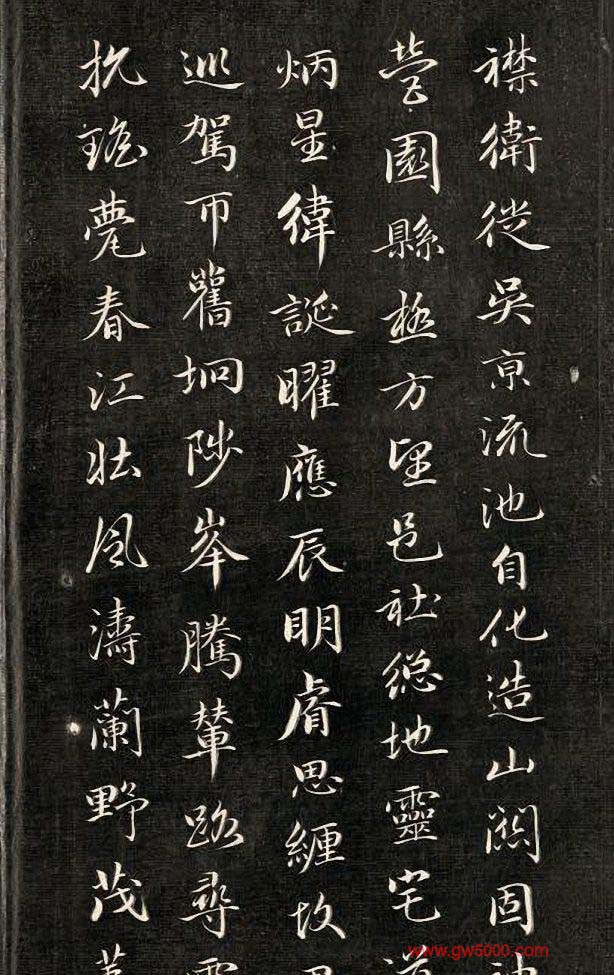 襟衛徙吳京流池自化造山關固
營園縣極方望邑社總地靈宅
炳星緯誕曜應辰明睿思纏故
巡駕帀舊坰陟峯騰輦路尋雲
抗瑤甍春江壯風濤蘭野茂
www.gw5000.com